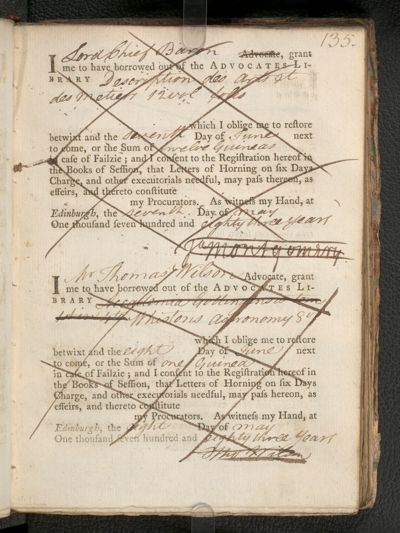 135.
I Lord Chief Baron Advocate, grant
me to have borrowed out of the ADVOCATES LI-
BRARY Description des Arts et
des metiers 12 vol
which I oblige me to reſtore
betwixt and the seventh Day of June next
to come, or the Sum of twelve Guineas
in caſe of Failzie; and I conſent to the Regiſtration hereof in
the Books of Seſſion, that Letters of Horning on ſix Days
Charge, and other executorials needful, may paſs thereon, as
effeirs, and thereto conſtitute
my Procurators. As witneſs my Hand, at
Edinburgh, the seventh Day of may
One thouſand ſeven hundred and eighty three years
Ja Montgomery
I Mr Thomas Wilson Advocate, grant
me to have borrowed out of the ADVOCATES LI-
BRARY
Whistons Astronomy 8vo
which I oblige me to reſtore
betwixt and the eight Day of June next
to come, or the Sum of one Guinea
in caſe of Failzie; and I conſent to the Regiſtration hereof in
the Books of Seſſion, that Letters of Horning on ſix Days
Charge, and other executorials needful, may paſs hereon, as
effeirs, and thereto conſtitute
my Procurators. As witneſs my Hand, at
Edinburgh, the eight Day of may
One thouſand ſeven hundred and eighty three years
Tho Wilson